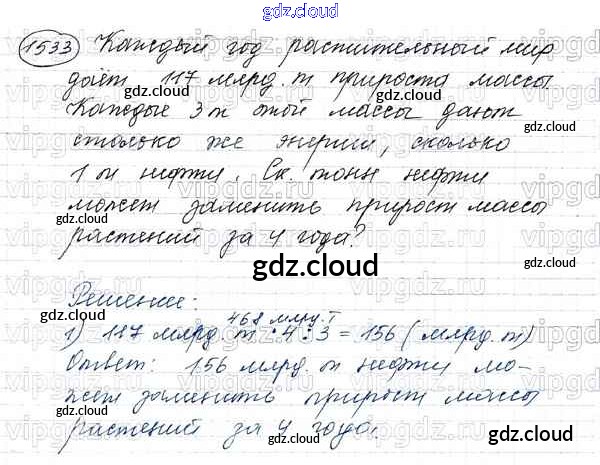 gdz.cloud
1533 Каждый год растительный мир
даёт 117 млрд. т прироста массы.
Каждые 3 т этой массы дают
столько же энергии, сколько
1 т нефти. Ск. тонн нефти
может заменить прирост массы
растений за 4 года?
gdz.cloud
Решение:
468 млрд.т
1) 117 млрд. т · 4 : 3 = 156 (млрд. т)
Ответ: 156 млрд. т нефти мо-
жет заменить прирост массы
растений за 4 года.